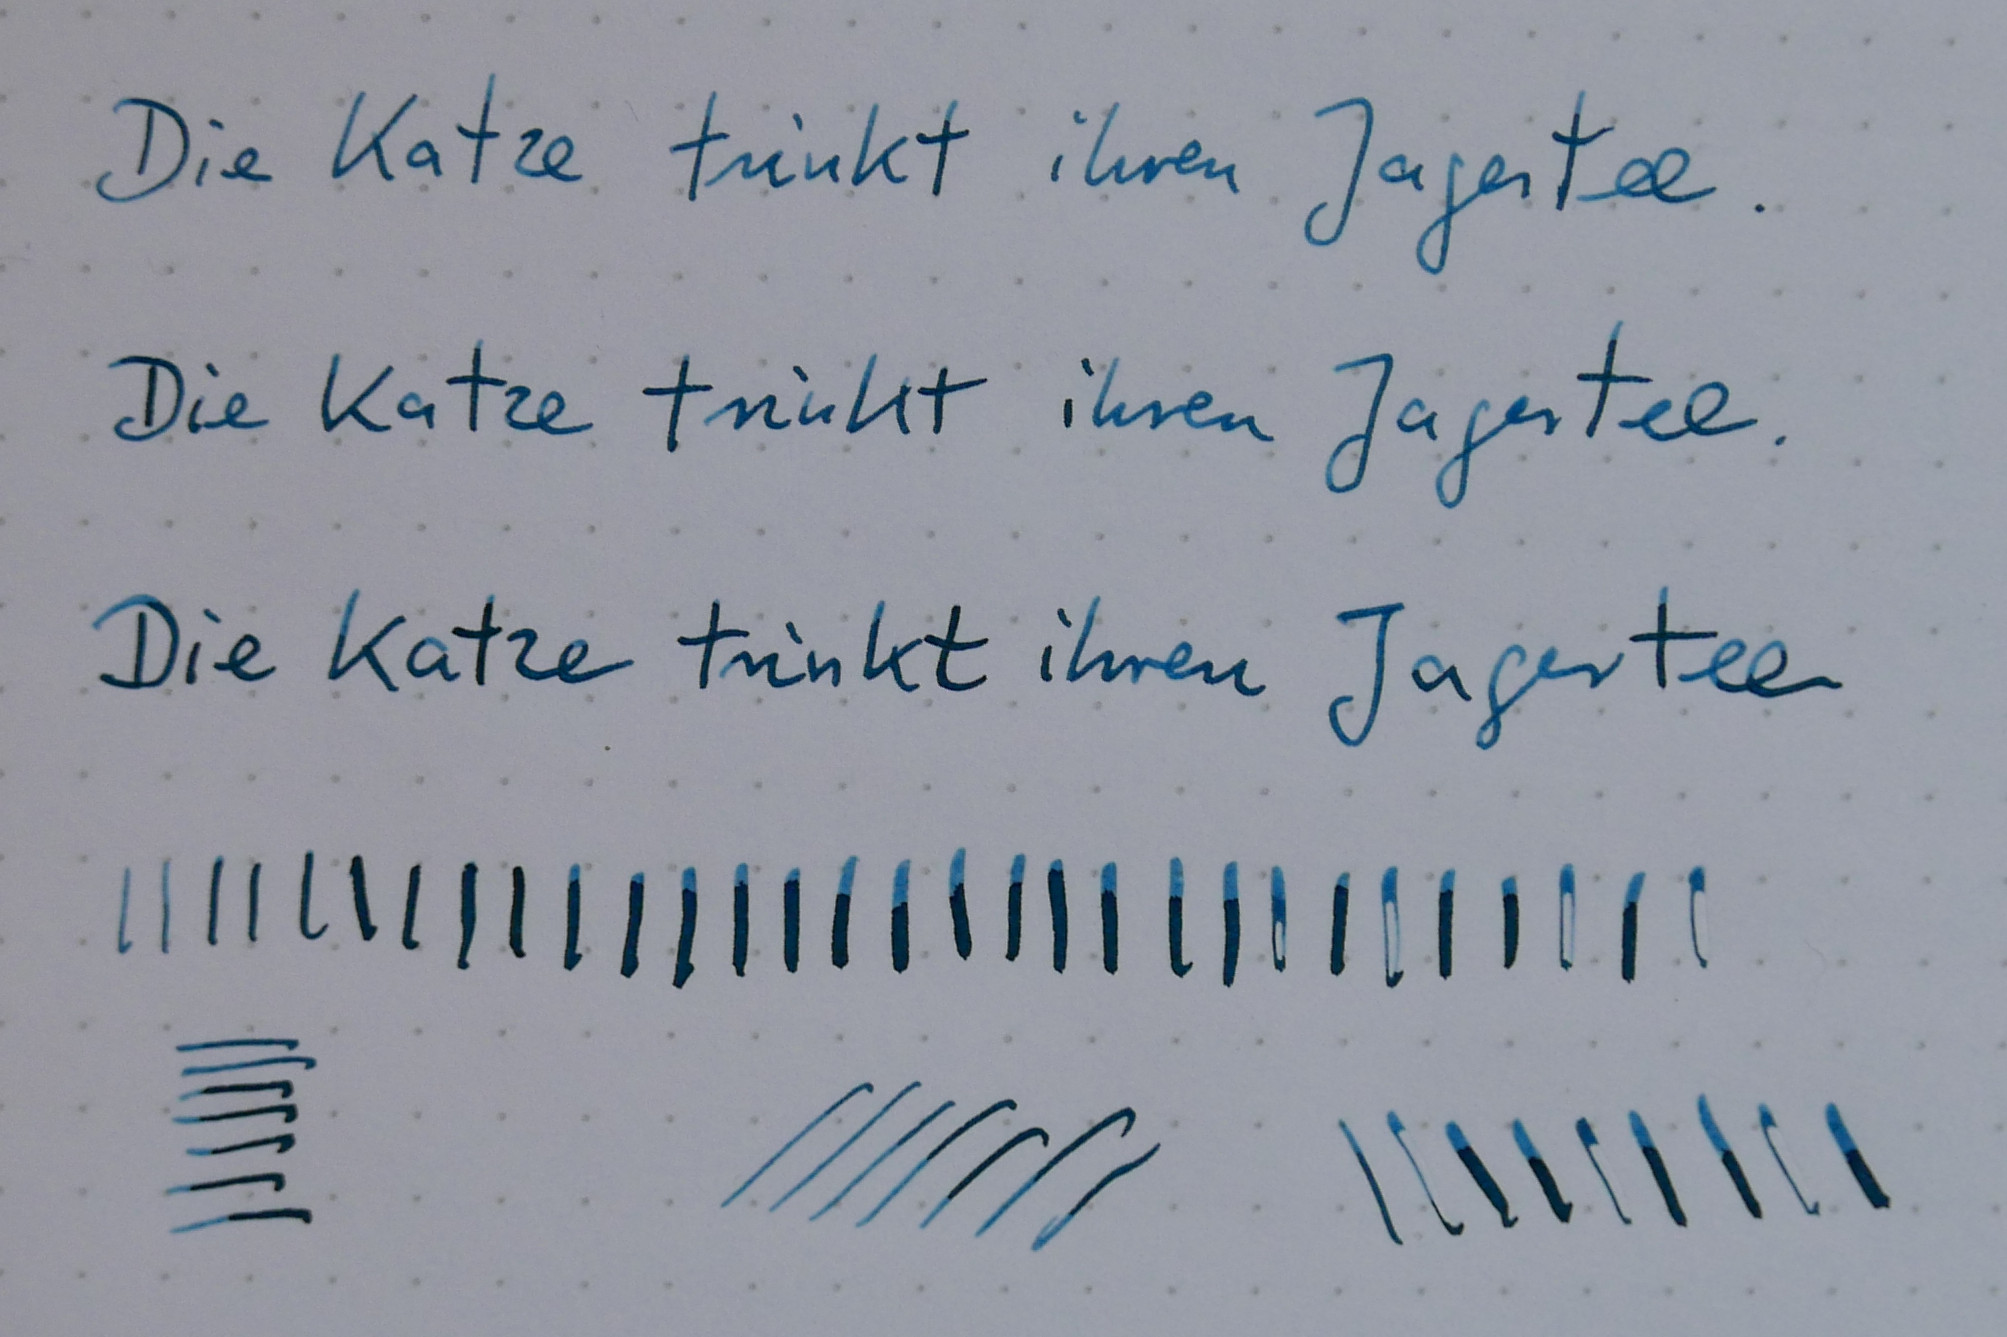 Die Katze trinkt ihren Jagertee.
Die Katze trinkt ihren Jagertee.
Die Katze trinkt ihren Jagertee